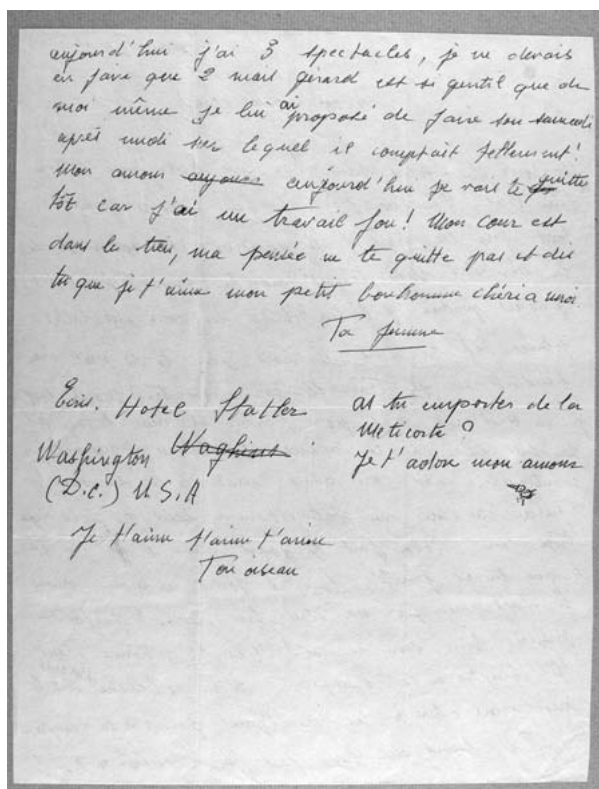 aujourd'hui j'ai 3 spectacles, je ne devais
en faire que 2 mais gérard est si gentil que de
moi même je lui ai proposé de faire son samedi
après midi sur lequel il comptait tellement!
Mon amour aujour aujourd'hui je vais te quitter
tôt car j'ai un travail fou! Mon cour est
dans le tien, ma pensée ne te quitte pas et dis
tu que je t'aime mon petit bonhomme chéri a moi.
Ta femme
Ecris. Hotel Statler
Washington Waghins
(D.C.) U S.A
as tu emporter de la
Meticorte?
Je t'adore mon amour
Je t'aime t'aime t'aime
Ton oiseau